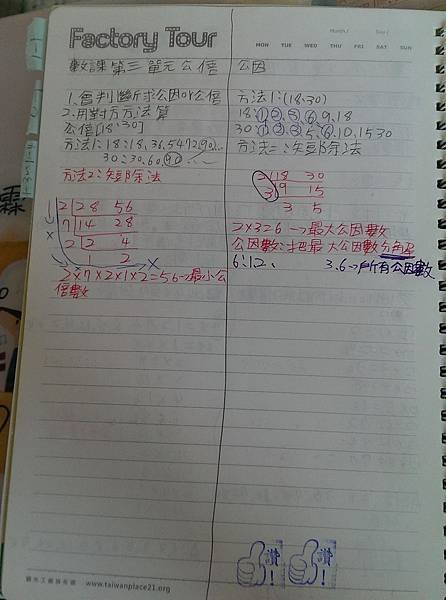 Factory Tour
Month / Day /
MON TUE WED THU FRI SAT SUN
數課第三單元公倍
1.會判斷求公因or公倍
2.用對方方法算
公倍[18、30]
方法1:18:18,36,54,72,90…
30:30、60、90
方法2:短除法
2 28 56
7 14 28
2 2 4
1 2
2×7×2×1×2=56→最小公
倍數
公因
方法1:(18、30)
18:1、2、3、6、9、18
30:1、2、3、5、6、10、15 30
方法二:短除法
2 18 30
3 9 15
3 5
2×3=6→最大公因數
公因數:把最大公因數分解
6:1 2、3、6→所有公因數
讚!
讚!
觀光工廠自在遊 www.taiwanplace21.org